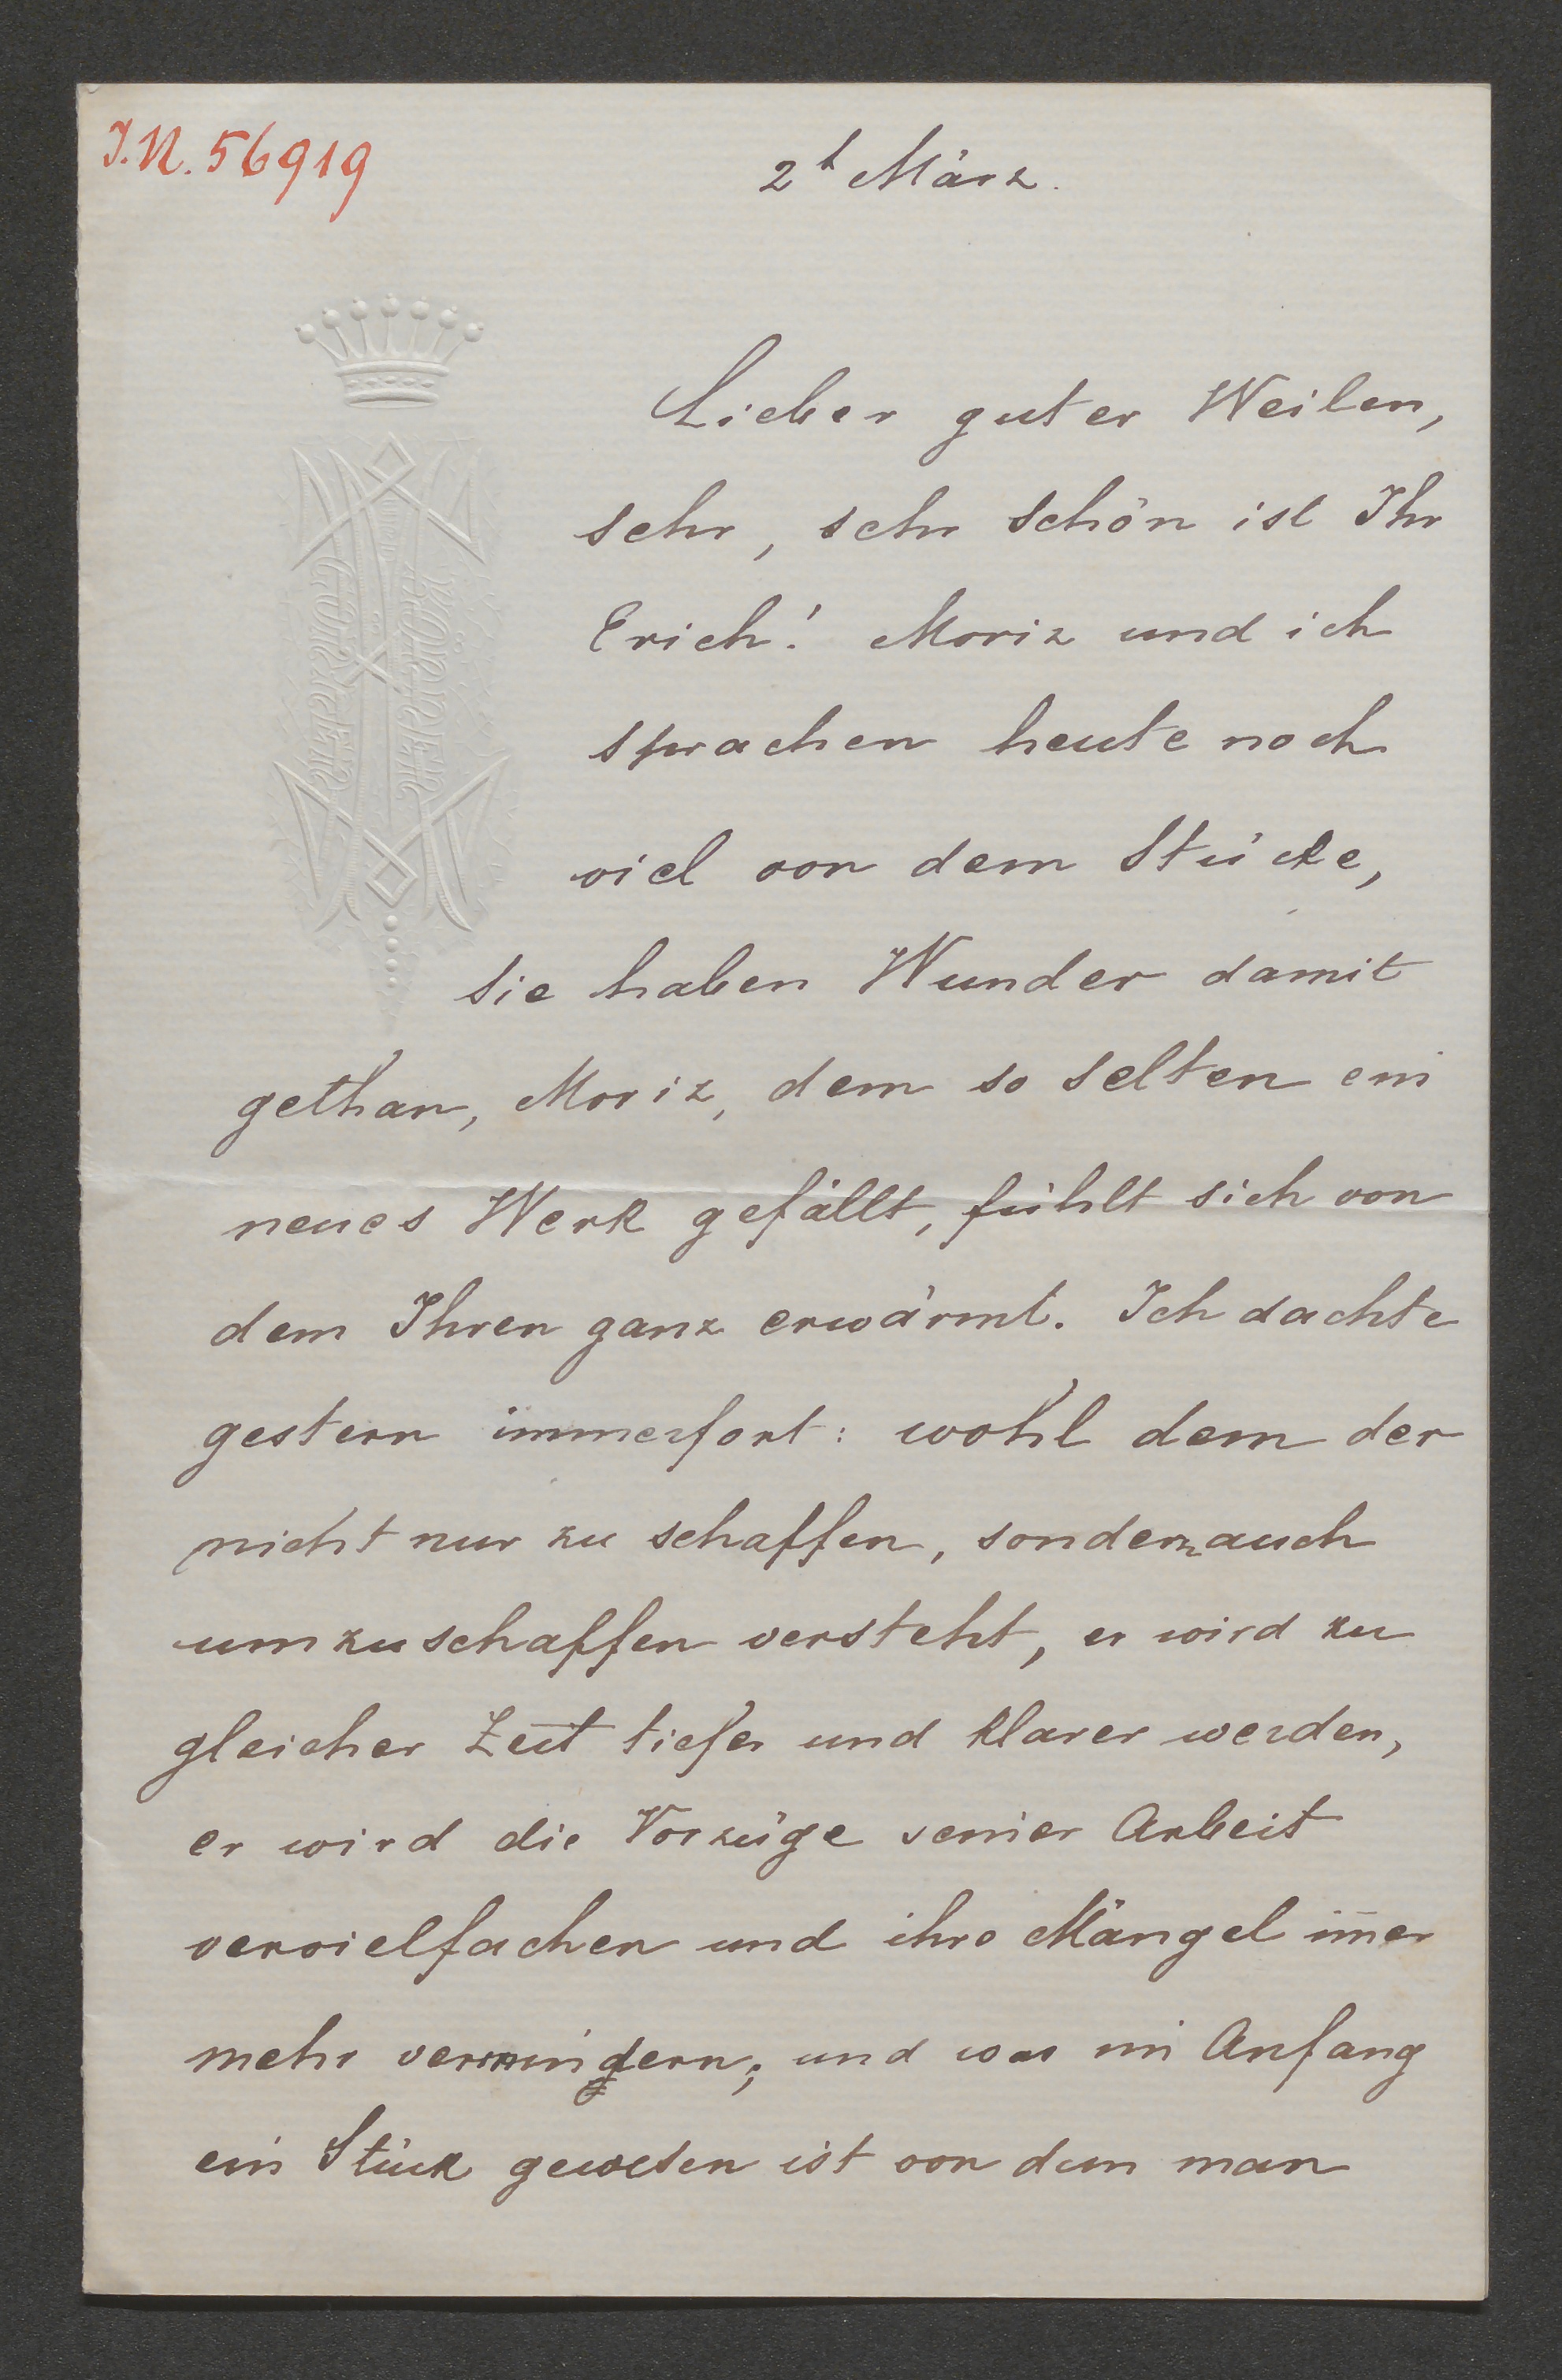 J.N. 56919
2t März.
Lieber guter Weilen,
sehr, sehr schön ist Ihr
Erich! Moriz und ich
sprachen heute noch
viel von dem Stücke,
Sie haben Wunder damit
gethan, Moriz, dem so selten ein
neues Werk gefällt, fühlt sich von
dem Ihren ganz erwärmt. Ich dachte
gestern immerfort: wohl dem der
nicht nur zu schaffen, sondern auch
umzuschaffen versteht, er wird zu
gleicher Zeit tiefer und klarer werden,
er wird die Vorzüge seiner Arbeit
vervielfachen und ihre Mängel im̅er
mehr verringern; und was im Anfang
ein Stück gewesen ist von dem man